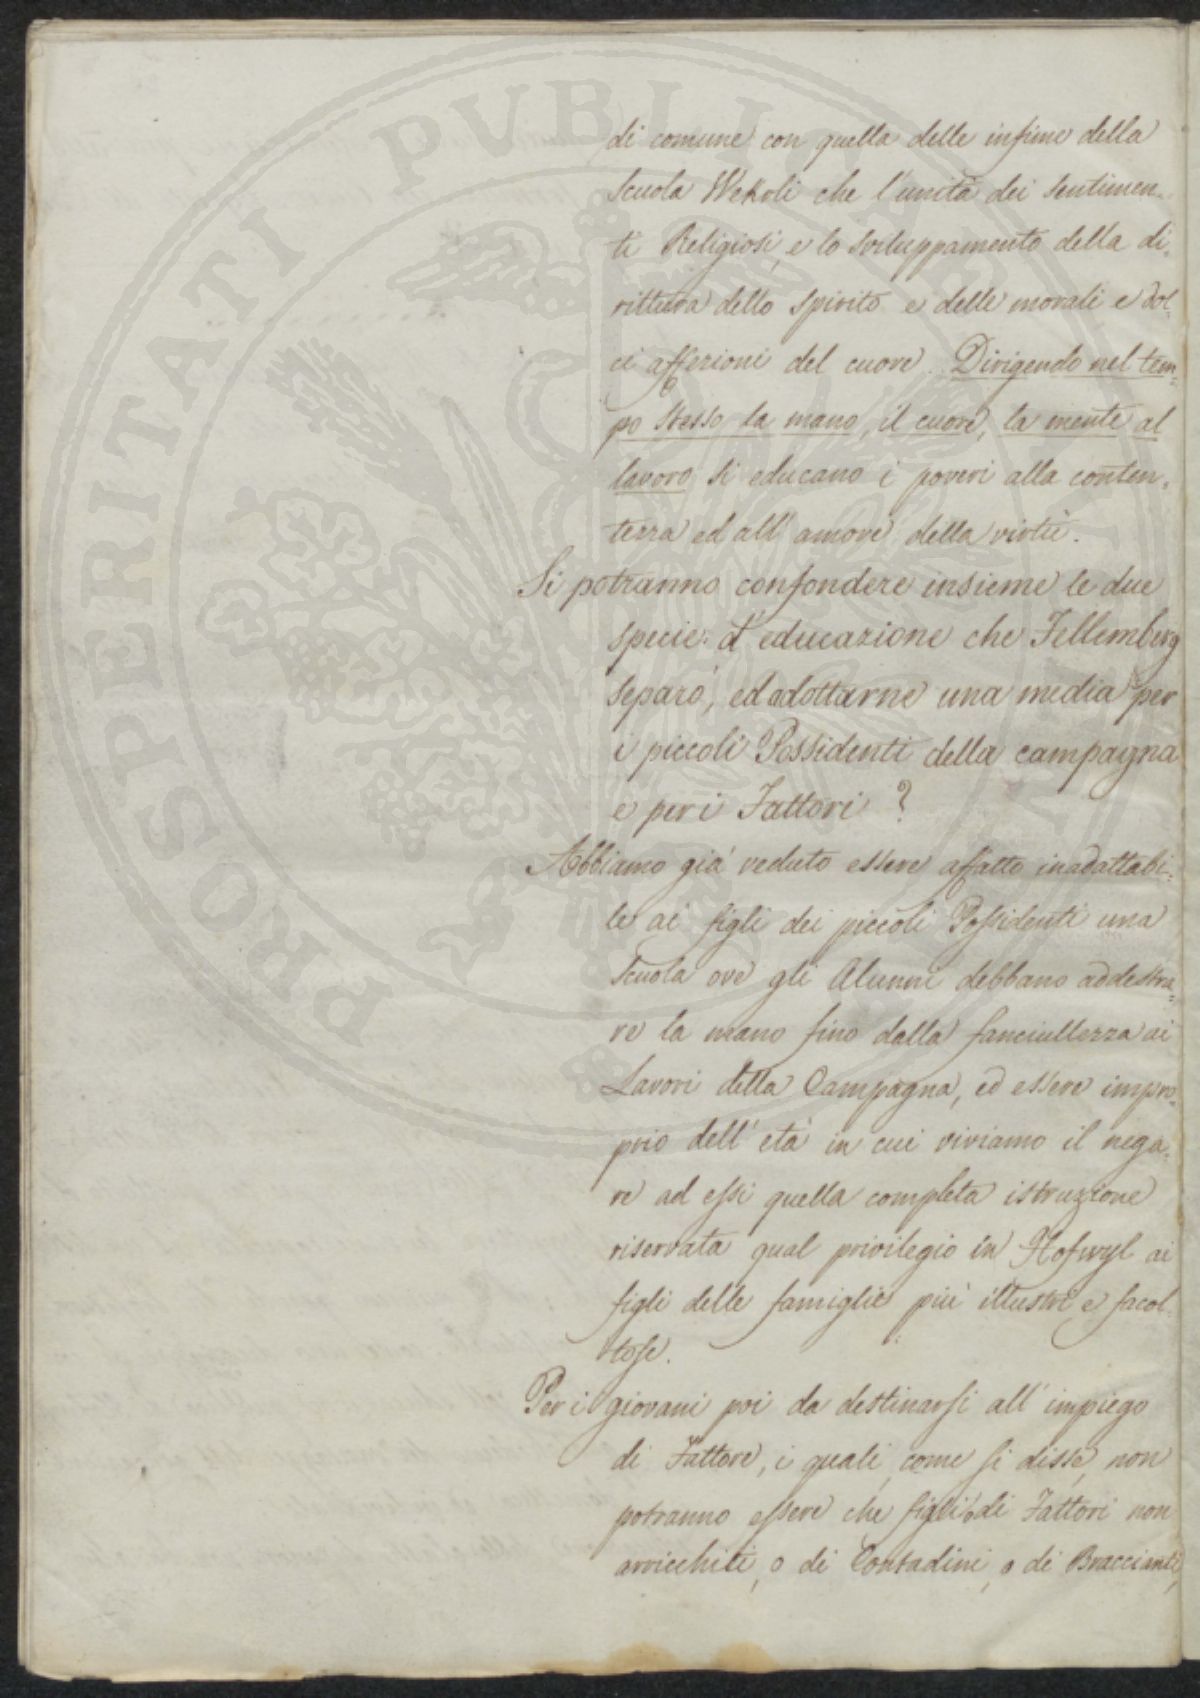 di comune con quella delle infime della
Scuola Wekrli che l'unità dei sentimen-
ti Religiosi, e lo sviluppamento della di-
rittura dello spirito e delle morali e dol-
ci affezioni del cuore. Dirigendo nel tem-
po stesso la mano, il cuore, la mente al
lavoro si educano i poveri alla conten-
tezza ed all'amore della virtù.
Si potranno confondere insieme le due
specie d'educazione che Fellemberg
separò, ed adottarne una media per
i piccoli Possidenti della campagna
e per i Fattori?
Abbiamo già veduto essere affatto inadattabi-
le ai figli dei piccoli Possidenti una
Scuola ove gli Alunni debbano addestra-
re la mano fino dalla fanciullezza ai
Lavori della Campagna, ed essere impro-
prio dell'età in cui viviamo il nega-
re ad essi quella completa istruzione
riservata qual privilegio in Hofwyl ai
figli delle famiglie più illustri e facol-
tose.
Per i giovani poi da destinarsi all'impiego
di Fattore, i quali, come si disse, non
potranno essere che figli di Fattori non
arricchiti, o di Contadini, o di Braccianti,
PROSPERITATI PUBLICAE